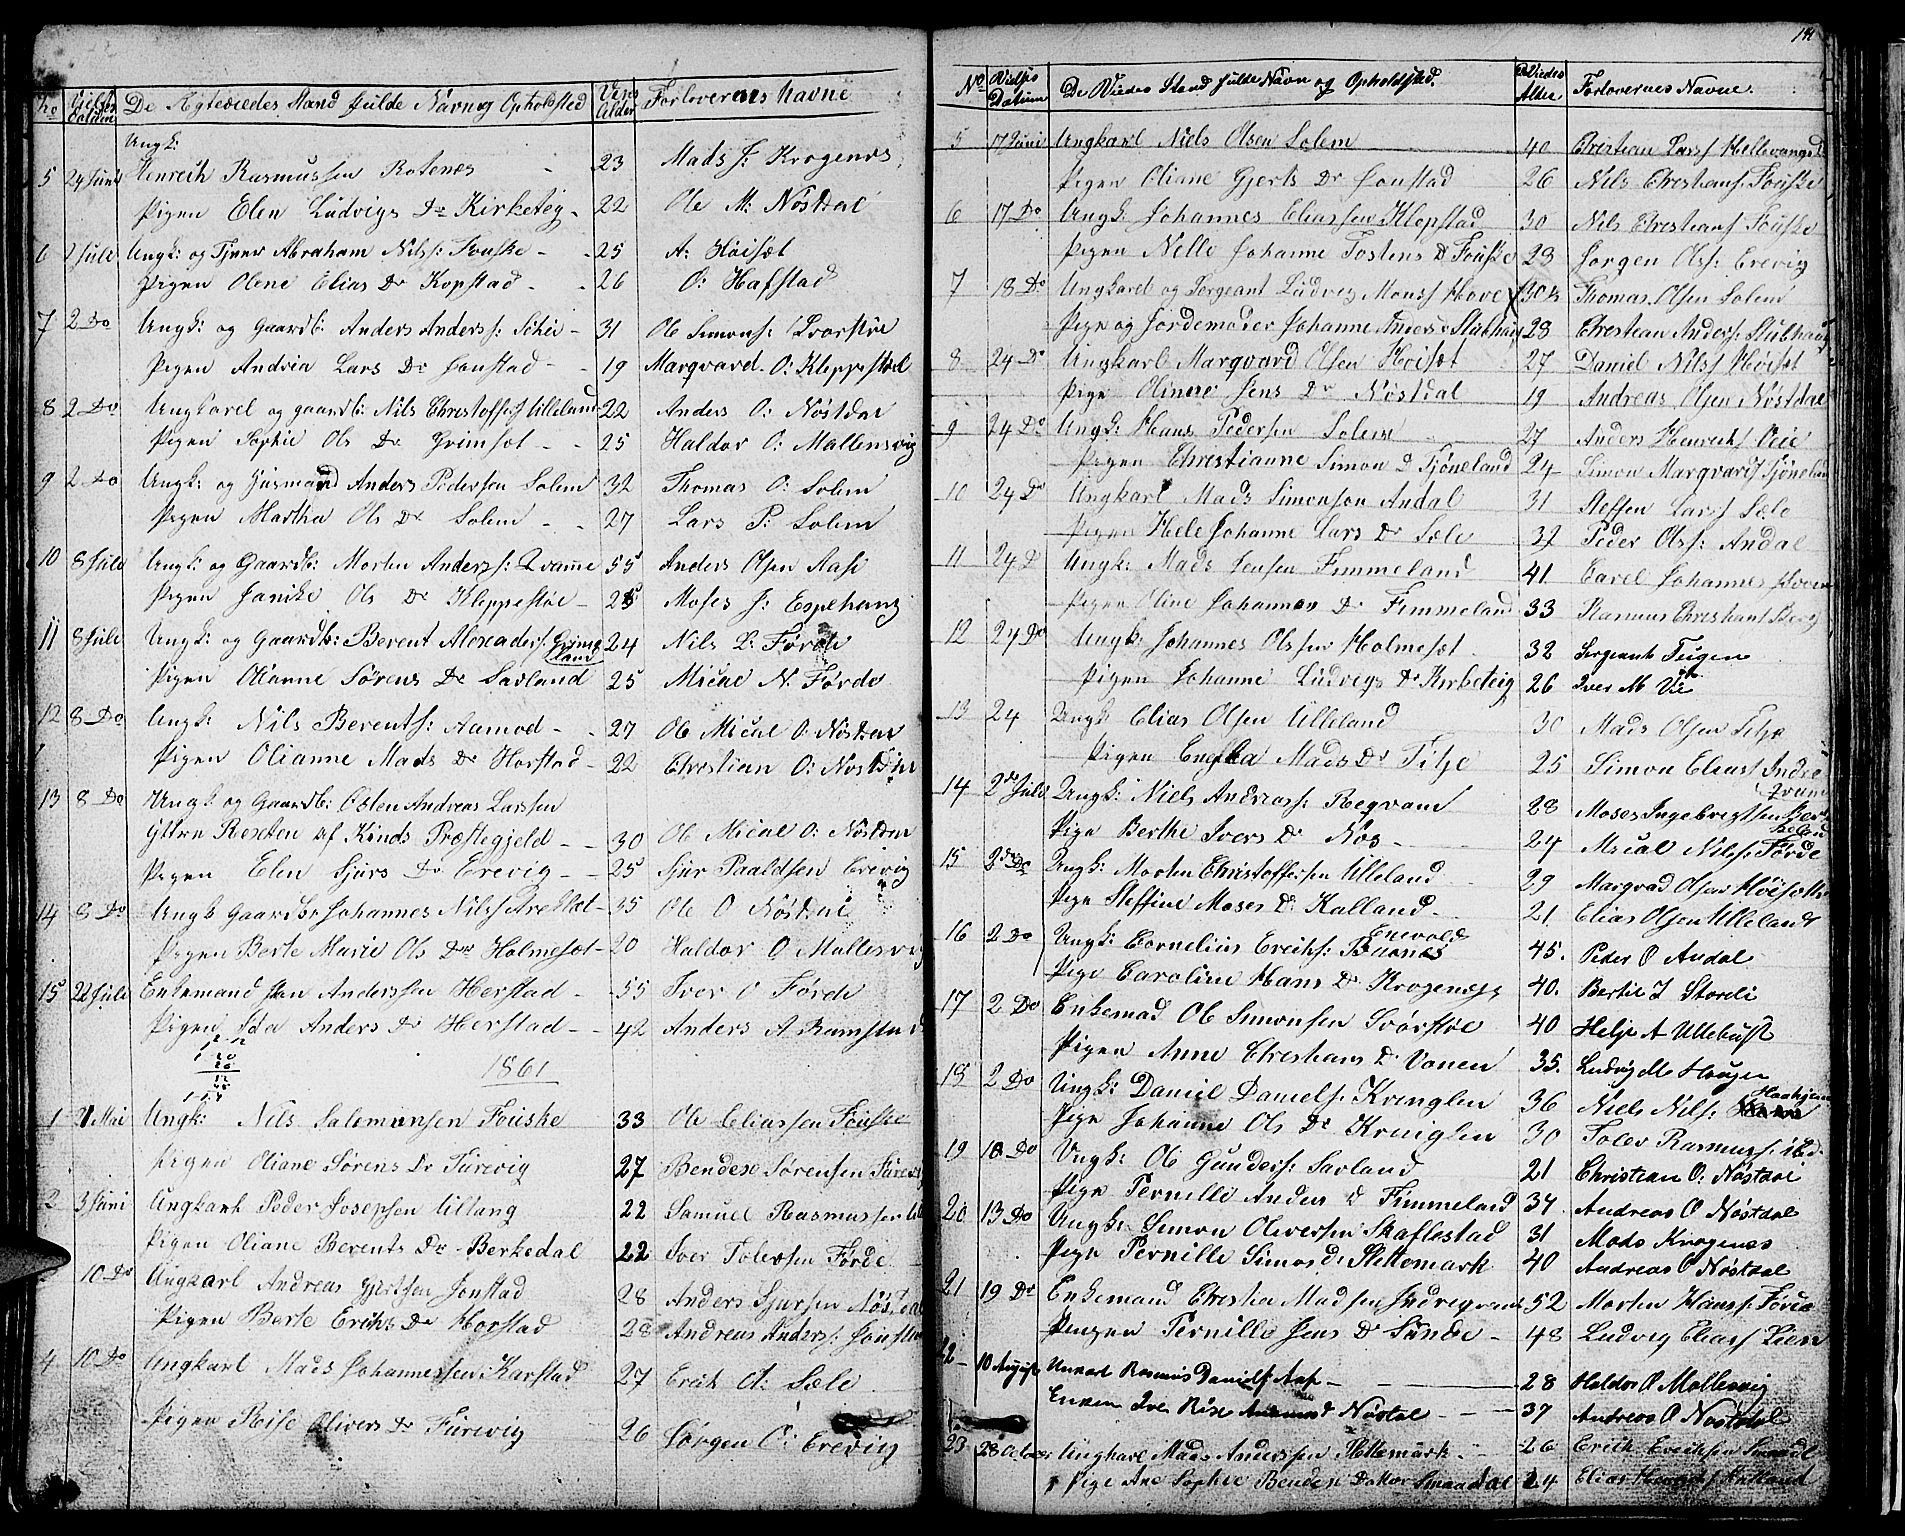 No Vielses Datum De Ægteviedes Stand fulde Navn og Opholdsted Deres Alder Forlovernes Navne
Ungk:
5 24 Juni Henrich Rasmussen Rotenes 23 Mads J: Krogenes
Pigen Elen Ludvigs Dr Kirketeig 22 Ole M: Nöstdal
6 2 Juli Ungk: og Tjener Abraham Nils: Fouske 25 A: Höisæt
Pigen Olene Elias Dr Kopstad 26 O: Hafstad
7 2 Do Ungk: og Gaardb: Anders Anderss: Schei 31 Ole Simons: Svorstöe
Pigen Andrea Lars Dr Jonstad 19 Marqvard O: Kleppestöel
8 2 Do Ungkarel og gaardb: Nils Christoffers Ulleland 22 Anders O: Nöstdal
Pigen Sophie Ols Dr Grimsæt 25 Haldor O: Mallensvig
9 2 Do Ungk: og Husmand Anders Pedersen Solem 32 Thomas O: Solem
Pigen Martha Ols Dr Solem 27 Lars P: Solem
10 8 Juli Ungk: og Gaardb: Morten Anderss: Qvamme 55 Anders Olsen Aase
Pigen Janike Ols Dr Kleppestöe 25 Moses J: Espehaug
11 8 Juli Ungk: og Gaardb: Berent Alexaders: Grimeland 24 Nils L: Förde
Pigen Olianne Sörens Dr Savland 25 Mical N. Förde
12 8 Do Ungk: Nils Berents: Aamod 27 Ole Mical O: Nöstdal
Pigen Olianne Mads Dr Horstad 22 Christian O: Nostdal
13 8 Do Ungk og Gaardb: Osten Andreas Larssen
yttre Rexten af Kinds Præstegjeld 30 Ole Mical O: Nöstdal
Pigen Elen Sjurs Dr Erevig 25 Sjur Paaldsen Erevig
14 8 Do Ungk Gaardbr Johannes Nils ArebLæt 35 Ole O Nöstdal
Pigen Berte Marie Ols Dr Holmesæt 20 Haldor O Mallesvig
15 22 Juli Enkemand Jan Anderssen Herstad 55 Iver O Förde
Pigen Ida Anders Dr Herstad 42 Anders A Ramstad
1861
1 1 Mai Ungk: Nils Salemonsen Fouske 33 Ole Eliassen Fouske
Pigen Oliane Sörens Dr Furevig 27 Bendex Sörensen Furevig
2 3 Juni Ungkark Peder Josepsen Utlang 22 Samuel Rasmussen
Pigen Oliane Berents Dr Berkedal 22 Iver Tolersen Förde
10 Do Ungkarl Andreas Gjertsen Jonstad 28 Anders Sjursen Nöstdal
Pigen Berte Eriks Dr Horstad 28 Andreas Anders: Jonstad
4 10 Do Ungkarl Mads Johannessen Karstad 27 Erik A: Sæle
Pigen Rise Olivers Dr Furevig 26 Jörgen O: Erevig
No Vielses Datum De Viedes Stand fulde Navn og Opholdsted. De Viedes Alder Forlovernes Navne.
5 17 Juni Ungkarl Niels Olsen Solem 40 Christian Larss Hellevangsd
Pigen Oliane Gjerts Dr Jonstad 26 Nils Christians: Fouske
6 17 Do Ungk. Johannes Eliassen Klopstad 30 Nils Christians Fouske
Pigen Nille Johanne Tostens D Fouske 23 Jorgen Olss: Erevig
7 18 Do Ungkarel og Sergeant Ludvig Monss Hove 30½ Thomas Olsen Solem
Pige og Jordemoder Johanne Anders Dr Stubhaug 28 Christian Anders: Stubhaug
8 24 Do Ungkarl Marqvard Olsen Höisæt 27 Daniel Nilss Höisæt
Pige Olinere Jens Dr Nöstdal 19 Andreas Olsen Nöstdal
9 24 Do Ungk: Hans Pedersen Solem 27 Anders Henrichs Veie
Pigen Christianne Simon D Tjöneland 24 Simon Marqvards Tjöneland
10 24 Do Ungkarl Mads Simonson Andal 31 Steffen Larss Sæle
Pigen Hele Johanne Lars Dr Sæle 32 Peder Olss: Andal
11 24 D Ungk: Mads Jensen Fimmeland 41 Carel Johannes
Pigen Oline Johannes Dr Fimmeland 33 Rasmus Christians
12 24 Do Ungk: Johannes Olssen Holmesæt 32 Sergeant Teigen
Pigen Johanne Ludvigs Dr Kirketeig 26 Iver M Vie
13 24 Ungk Elias Olsen Ulleland 30 Mads Olsen Tilje
Pigen Engela Mads Dr Tilje 25 Simon Elias: Indreqvam
14 2de Juli Ungk: Niels Andreass: Reqvam 28 Moses Ingebrigtsen
Pige Berthe Ivers Dr Nos 24 Mical Nils: Förde
15 2de Do Ungk: Morten Christoffersen Ulleland 29 Marqvad Olsen Höisæth
Pige Steffine Moses D: Kalland 21 Elias Olsen Ulleland
16 2 Do Ungk: Cornelius Erichs: Enevold 45. Peder O Andal
Pige Caroline Hans Dr Krogenes 40. Bertil I Stordi
17 2 Do Enkemad Ole Simonsen Svörstöe 40 Helje A Ullebust
Pigen Anne Christians Dr Vonen 35. Ludvig M Haugen
18 2 Do Ungk: Daniel Daniels: Krenglen 36 Niels Nils: Haahjem
Pige Johanne Ols Dr Kruiglen 30 Tolev Rasmuss: ibd.
19 10 Do Ungk: Ole Gunders: Savland 21 Christian O: Nöstdal
Pige Pernille Anders D Fimmeland 34 Andreas O Nöstdal
20 13 Do Ungk: Simon Oliversen Skaflestad 31 Mads Krogenes
Pige Pernille Simos Dr Slettemark 40 Andreas O Nöstdal
21 19 Do Enkemand Christen Madsen Indreqvam 52 Morten Hanss: Förde
Pingen Pernille Jens Dr Sunde 48 Ludvig Elias: Lien
22 10 August Unkarl Rasmus Davids: Aas 28 Haldor O Mollesvig
Enken Ive Rise Nöstal 37 Andreas O Nöstdal
23 28 October Ungkarl Mads Anderssen Slettemark 26 Erich Erichsen Smaadl
Pige Ane Sophie Bendex Datter Smaadal 24 Elias Henrichs